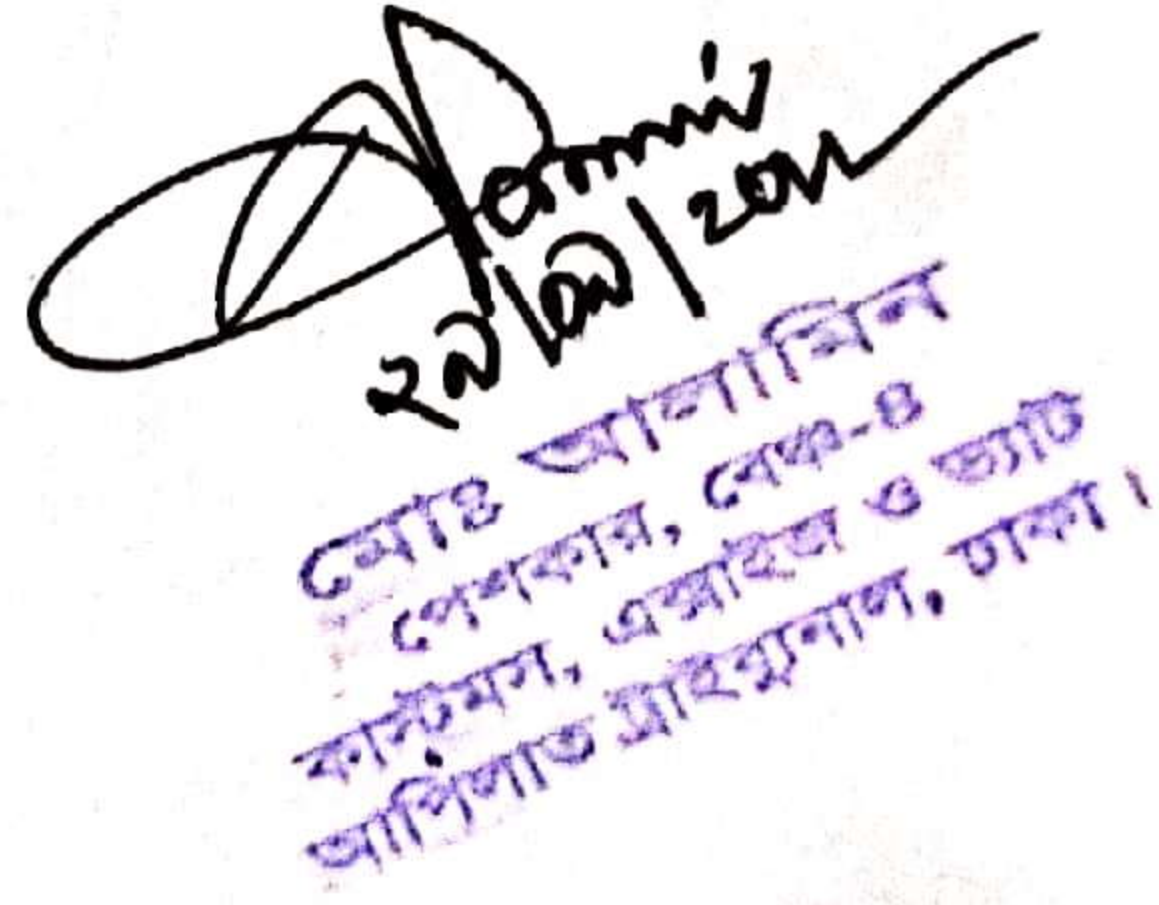 মোঃ আলামিন
পেশকার, বেঞ্চ-৪
কাস্টমস, এক্সাইজ ও ভ্যাট
আপিলাত ট্রাইব্যুনাল, ঢাকা।